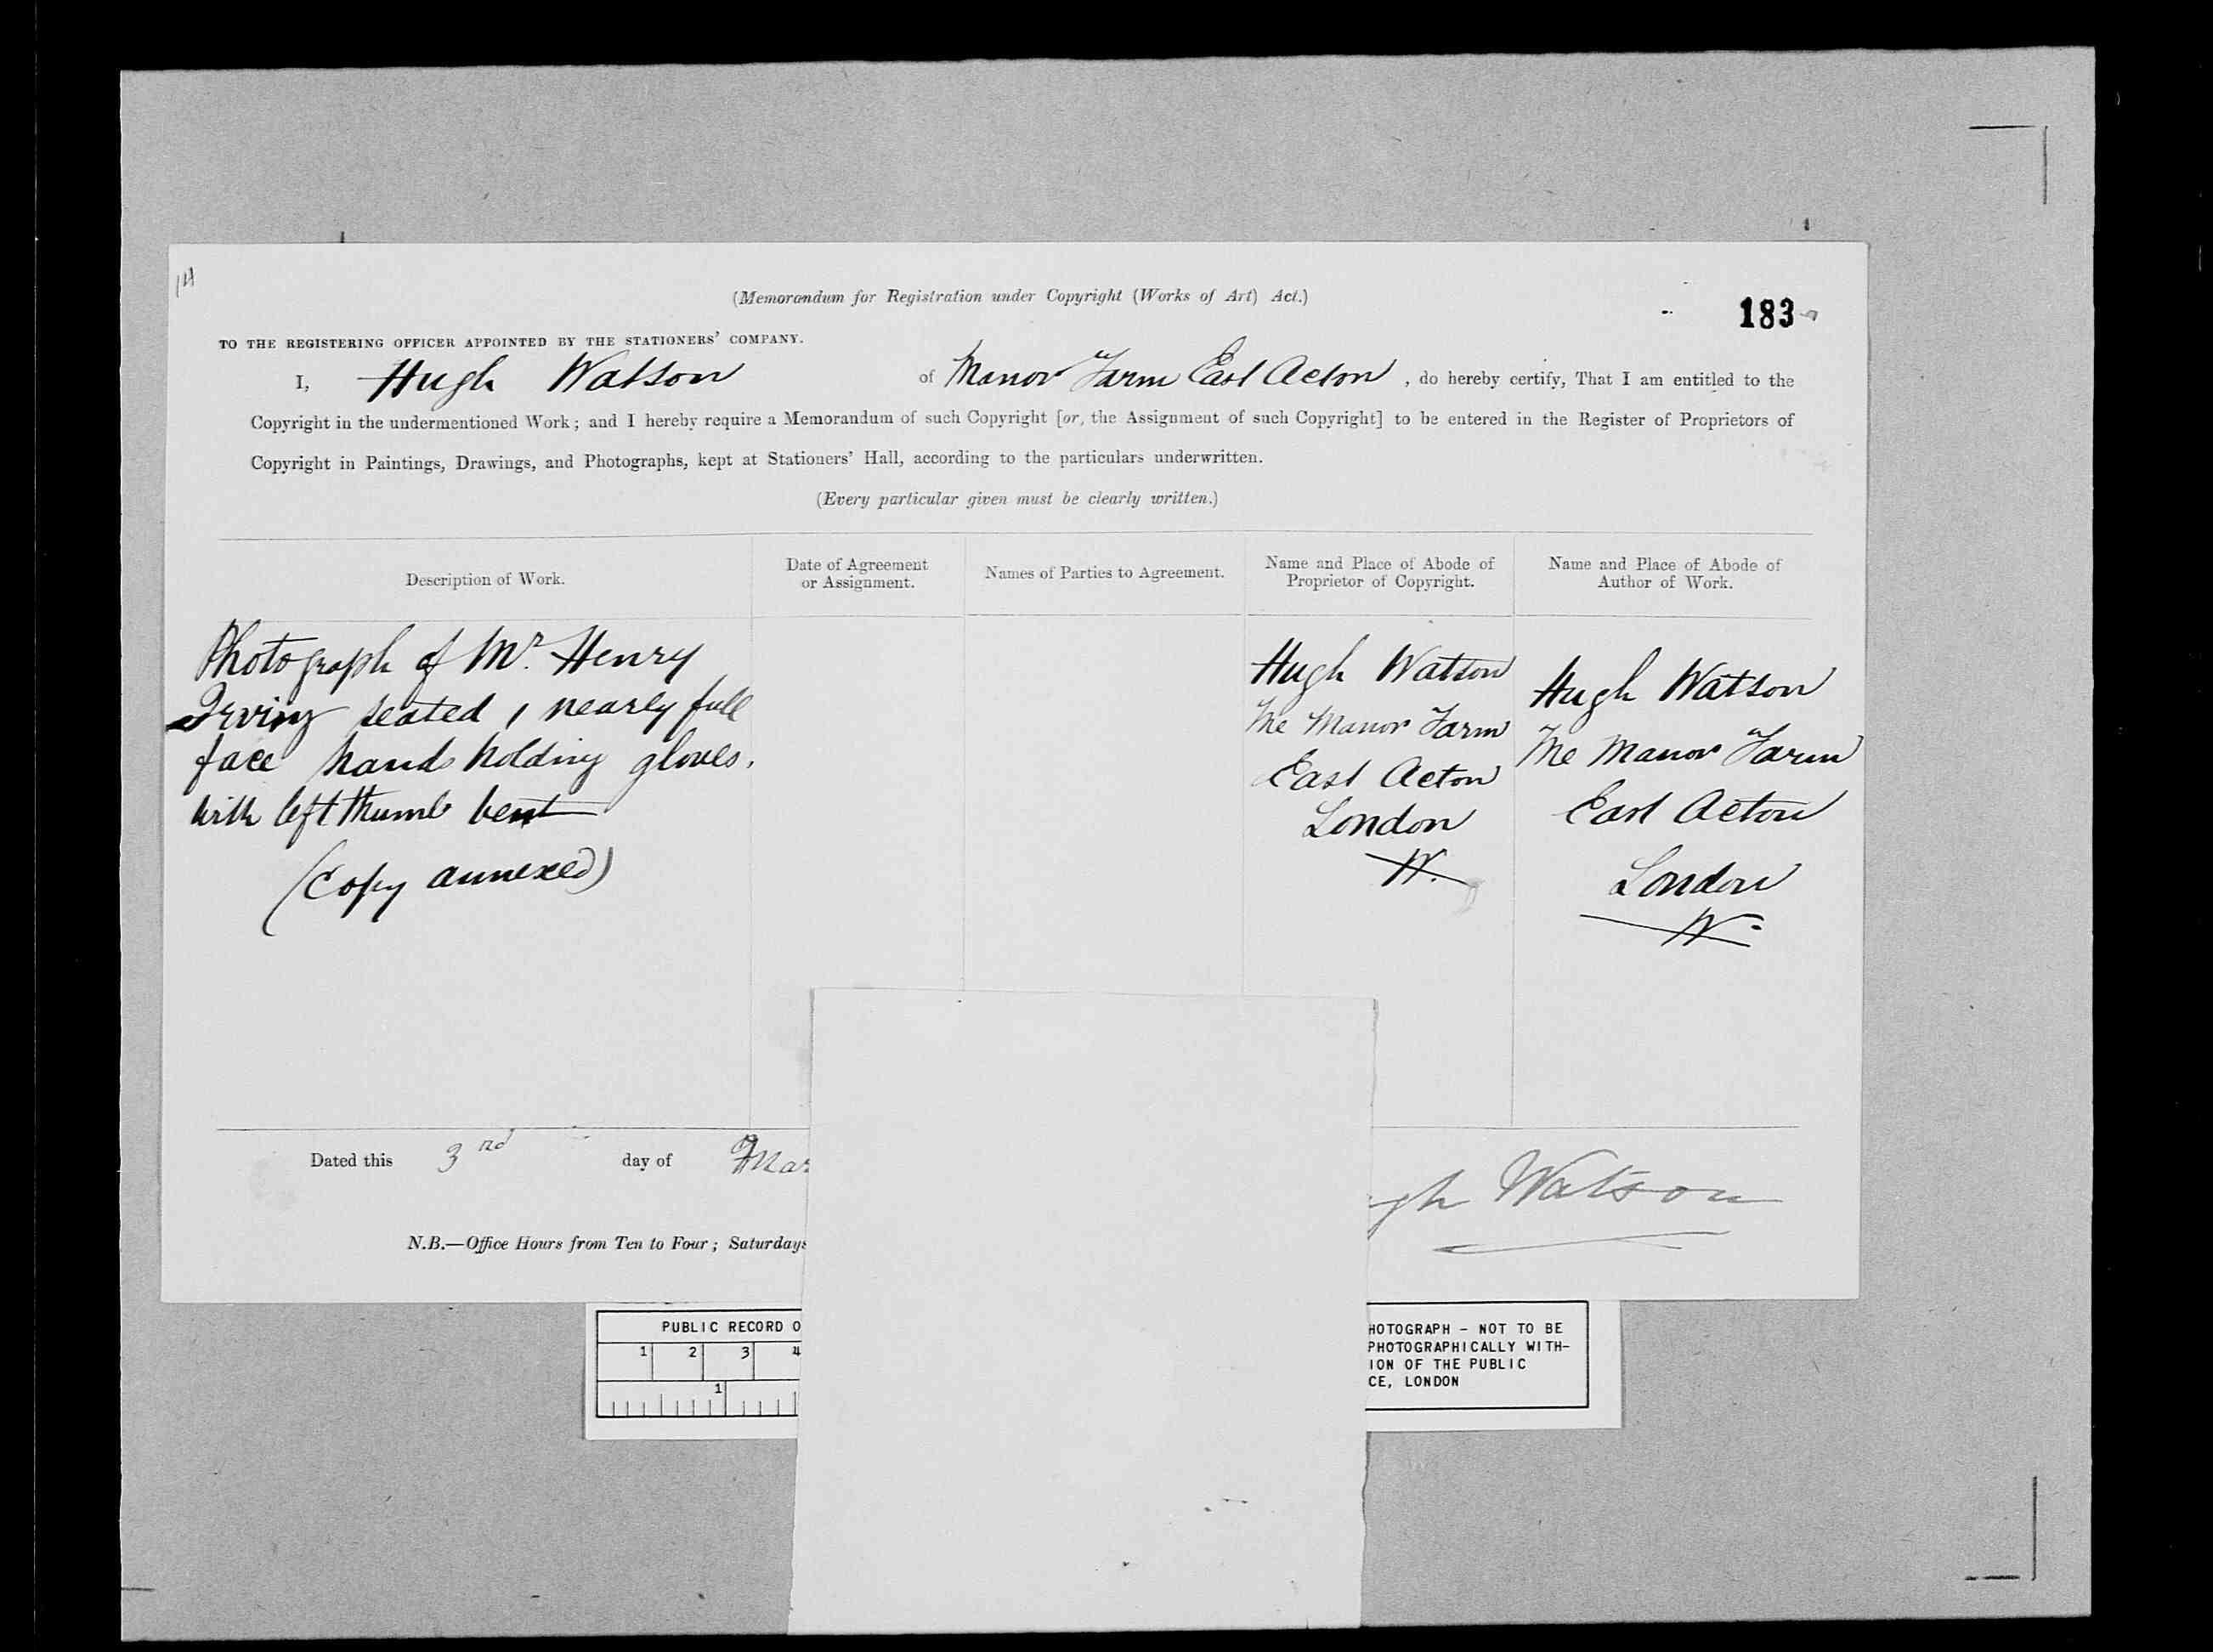 (Memorandum for Registration under Copyright (Works of Art) Act.)
183
TO THE REGISTERING OFFICER APPOINTED BY THE STATIONERS' COMPANY.
I, Hugh Watson of Manor Farm East Acton, do hereby certify, That I am entitled to the
Copyright in the undermentioned Work; and I hereby require a Memorandum of such Copyright [or, the Assignment of such Copyright] to be entered in the Register of Proprietors of
Copyright in Paintings, Drawings, and Photographs, kept at Stationers' Hall, according to the particulars underwritten.
(Every particular given must be clearly written.)
Description of Work.
Date of Agreement
or Assignment.
Names of Parties to Agreement.
Name and Place of Abode of
Proprietor of Copyright.
Name and Place of Abode of
Author of Work.
Photograph of Mr. Henry
Irving seated, nearly full
face hands holding gloves.
with left thumb bent
(Copy annexed)
Hugh Watson
The Manor Farm
East Acton
London
W.
Hugh Watson
The Manor Farm
East Acton
London
W.
Dated this 3rd day of Mar
gh Watson
N.B.—Office Hours from Ten to Four; Saturdays
PUBLIC RECORD O
1 2 3 4
1
HOTOGRAPH - NOT TO BE
PHOTOGRAPHICALLY WITH-
ION OF THE PUBLIC
CE, LONDON